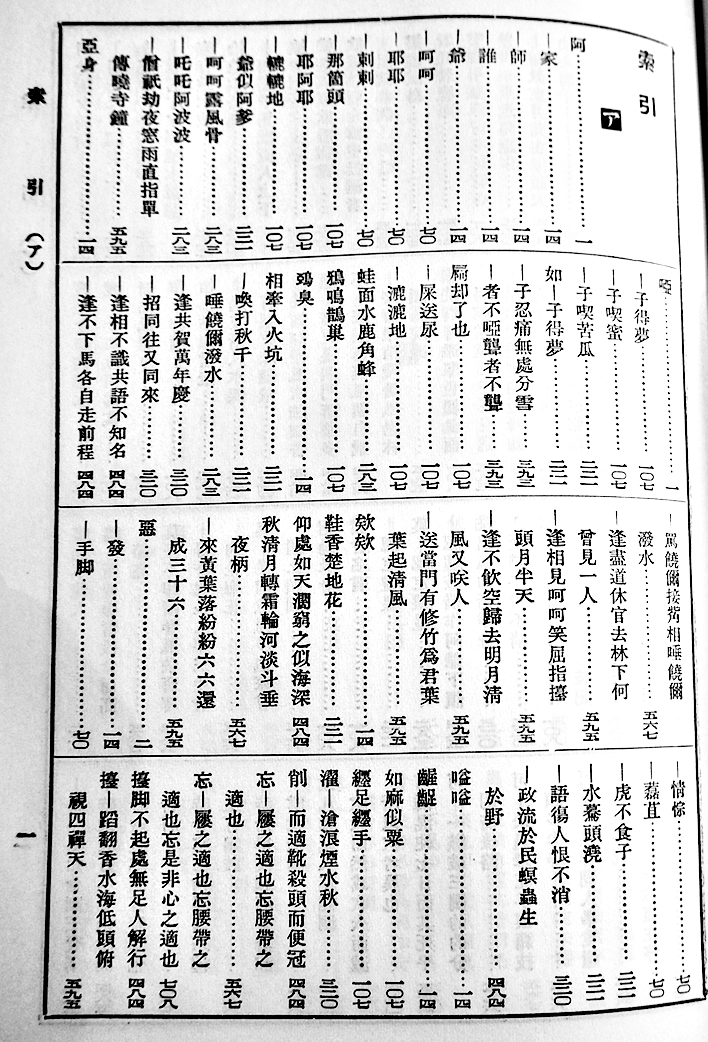 索引
ア
阿……………一
―家……………一四
―師……………一四
―誰……………一四
―爺……………一四
―呵呵……………七〇
―耶耶……………七〇
―剌剌……………七〇
―那箇頭……………一〇七
―耶阿耶……………一〇七
―轆轆地……………一〇七
―爺似阿爹……………二三一
―呵呵露風骨……………二八三
―吒吒阿波波……………二八三
―僧祇劫夜窓雨直指單
傳曉寺鐘……………五九五
亞身……………一四
啞……………一
―子得夢……………一〇七
―子喫蜜……………一〇七
―子喫苦瓜……………二三一
如―子得夢……………二三一
―子忍痛無處分雪……………三九三
―者不啞聾者不聾……………三九三
屙却了也……………一〇七
―屎送尿……………一〇七
―漉漉地……………一〇七
蛙面水鹿角蜂……………二八三
鴉鳴鵲巢……………一〇七
鵶臭……………一四
相牽入火坑……………二三一
―喚打秋千……………二三一
―唾饒儞潑水……………二八三
―逢共賀萬年慶……………三三〇
―招同往又同來……………三三〇
―逢相不識共語不知名……………四八四
―逢不下馬各自走前程……………四八四
―罵饒儞接觜相唾饒儞
潑水……………五六七
―逢盡道休官去林下何
曾見一人……………五九五
―逢相見呵呵笑屈指擡
頭月半天……………五九五
―逢不飲空歸去明月清
風又咲人……………五九五
―送當門有修竹爲君葉
葉起清風……………五九五
欸欸……………一四
鞋香楚地花……………二三一
仰處如天濶窮之似海深……………四八四
秋清月轉霜輪河淡斗垂
夜柄……………五六七
―來黃葉落紛紛六六還
成三十六……………五九五
惡……………二
―發……………一四
―手脚……………七〇
―情悰……………七〇
―蘂苴……………七〇
―虎不食子……………二三一
―水驀頭澆……………二三一
―語傷人恨不消……………三三〇
―政流於民螟蟲生
於野……………四八四
嗌嗌……………一四
齷齪……………一四
如麻似粟……………一〇七
纒足纒手……………一〇七
濯―滄浪煙水秋……………三三〇
削―而適靴殺頭而便冠……………四八四
忘―屨之適也忘腰帶之
適也……………五六七
忘―屨之適也忘腰帶之
適也忘是非心之適也……………七〇八
擡脚不起處無足人解行……………四八四
擡―蹈翻香水海低頭俯
視四禪天……………五九五
索引（ア）
一